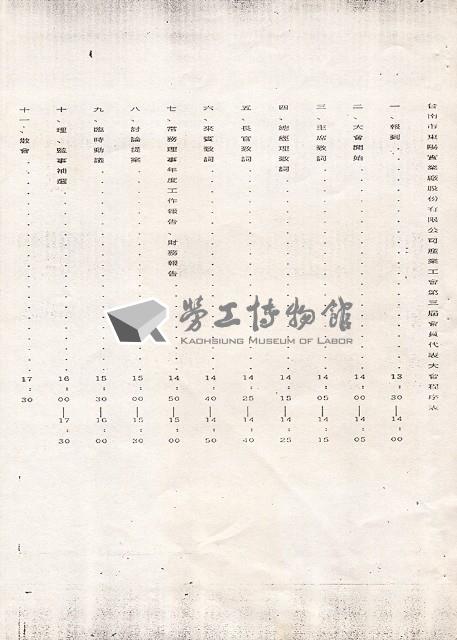 台南市東陽實業廠股份有限公司產業工會第三屆會員代表大會程序表
一、報到 13:30—14:00
二、大會開始 14:00—14:05
三、主席致詞 14:05—14:15
四、總經理致詞 14:15—14:25
五、長官致詞 14:25—14:40
六、來賓致詞 14:40—14:50
七、常務理事年度工作報告、財務報告 14:50—15:00
八、討論提案 15:00—15:30
九、臨時動議 15:30—16:00
十、理、監事補選 16:00—17:30
十一、散會 17:30
勞工博物館
KAOHSIUNG MUSEUM OF LABOR